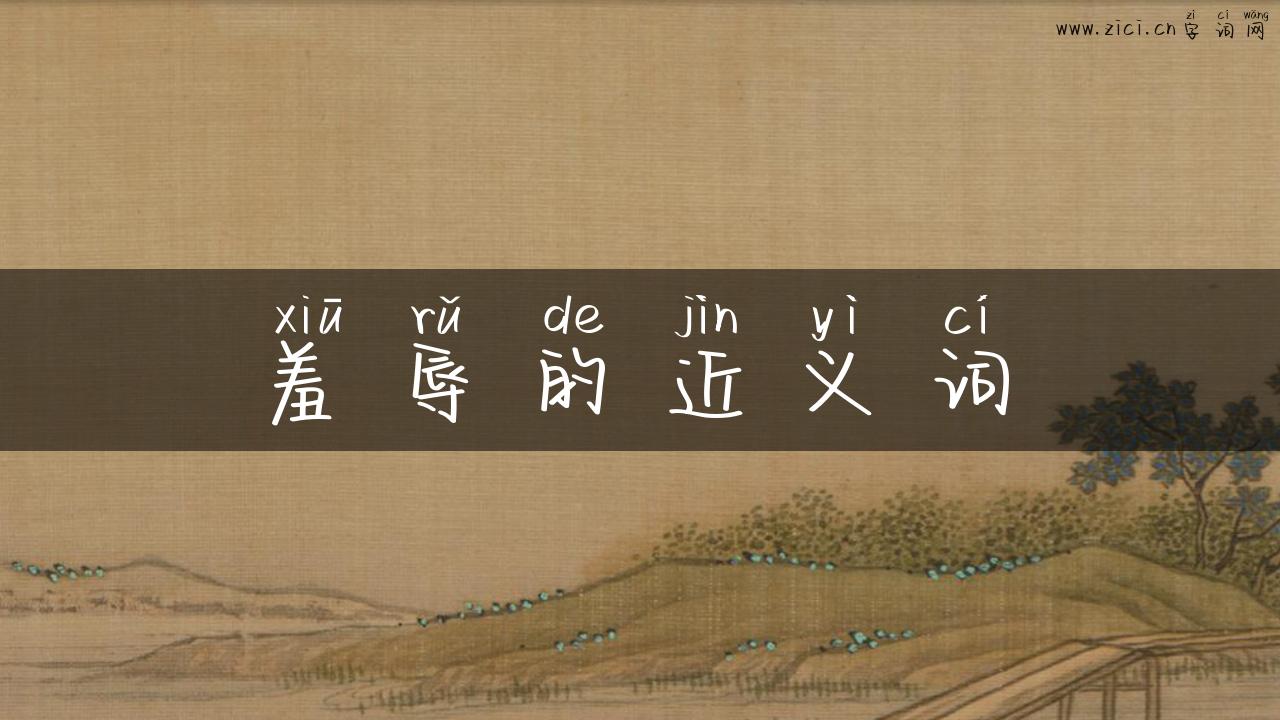 zì cí wǎng
www.zici.cn字词网
xiū rǔ de jìn yì cí
羞辱的近义词